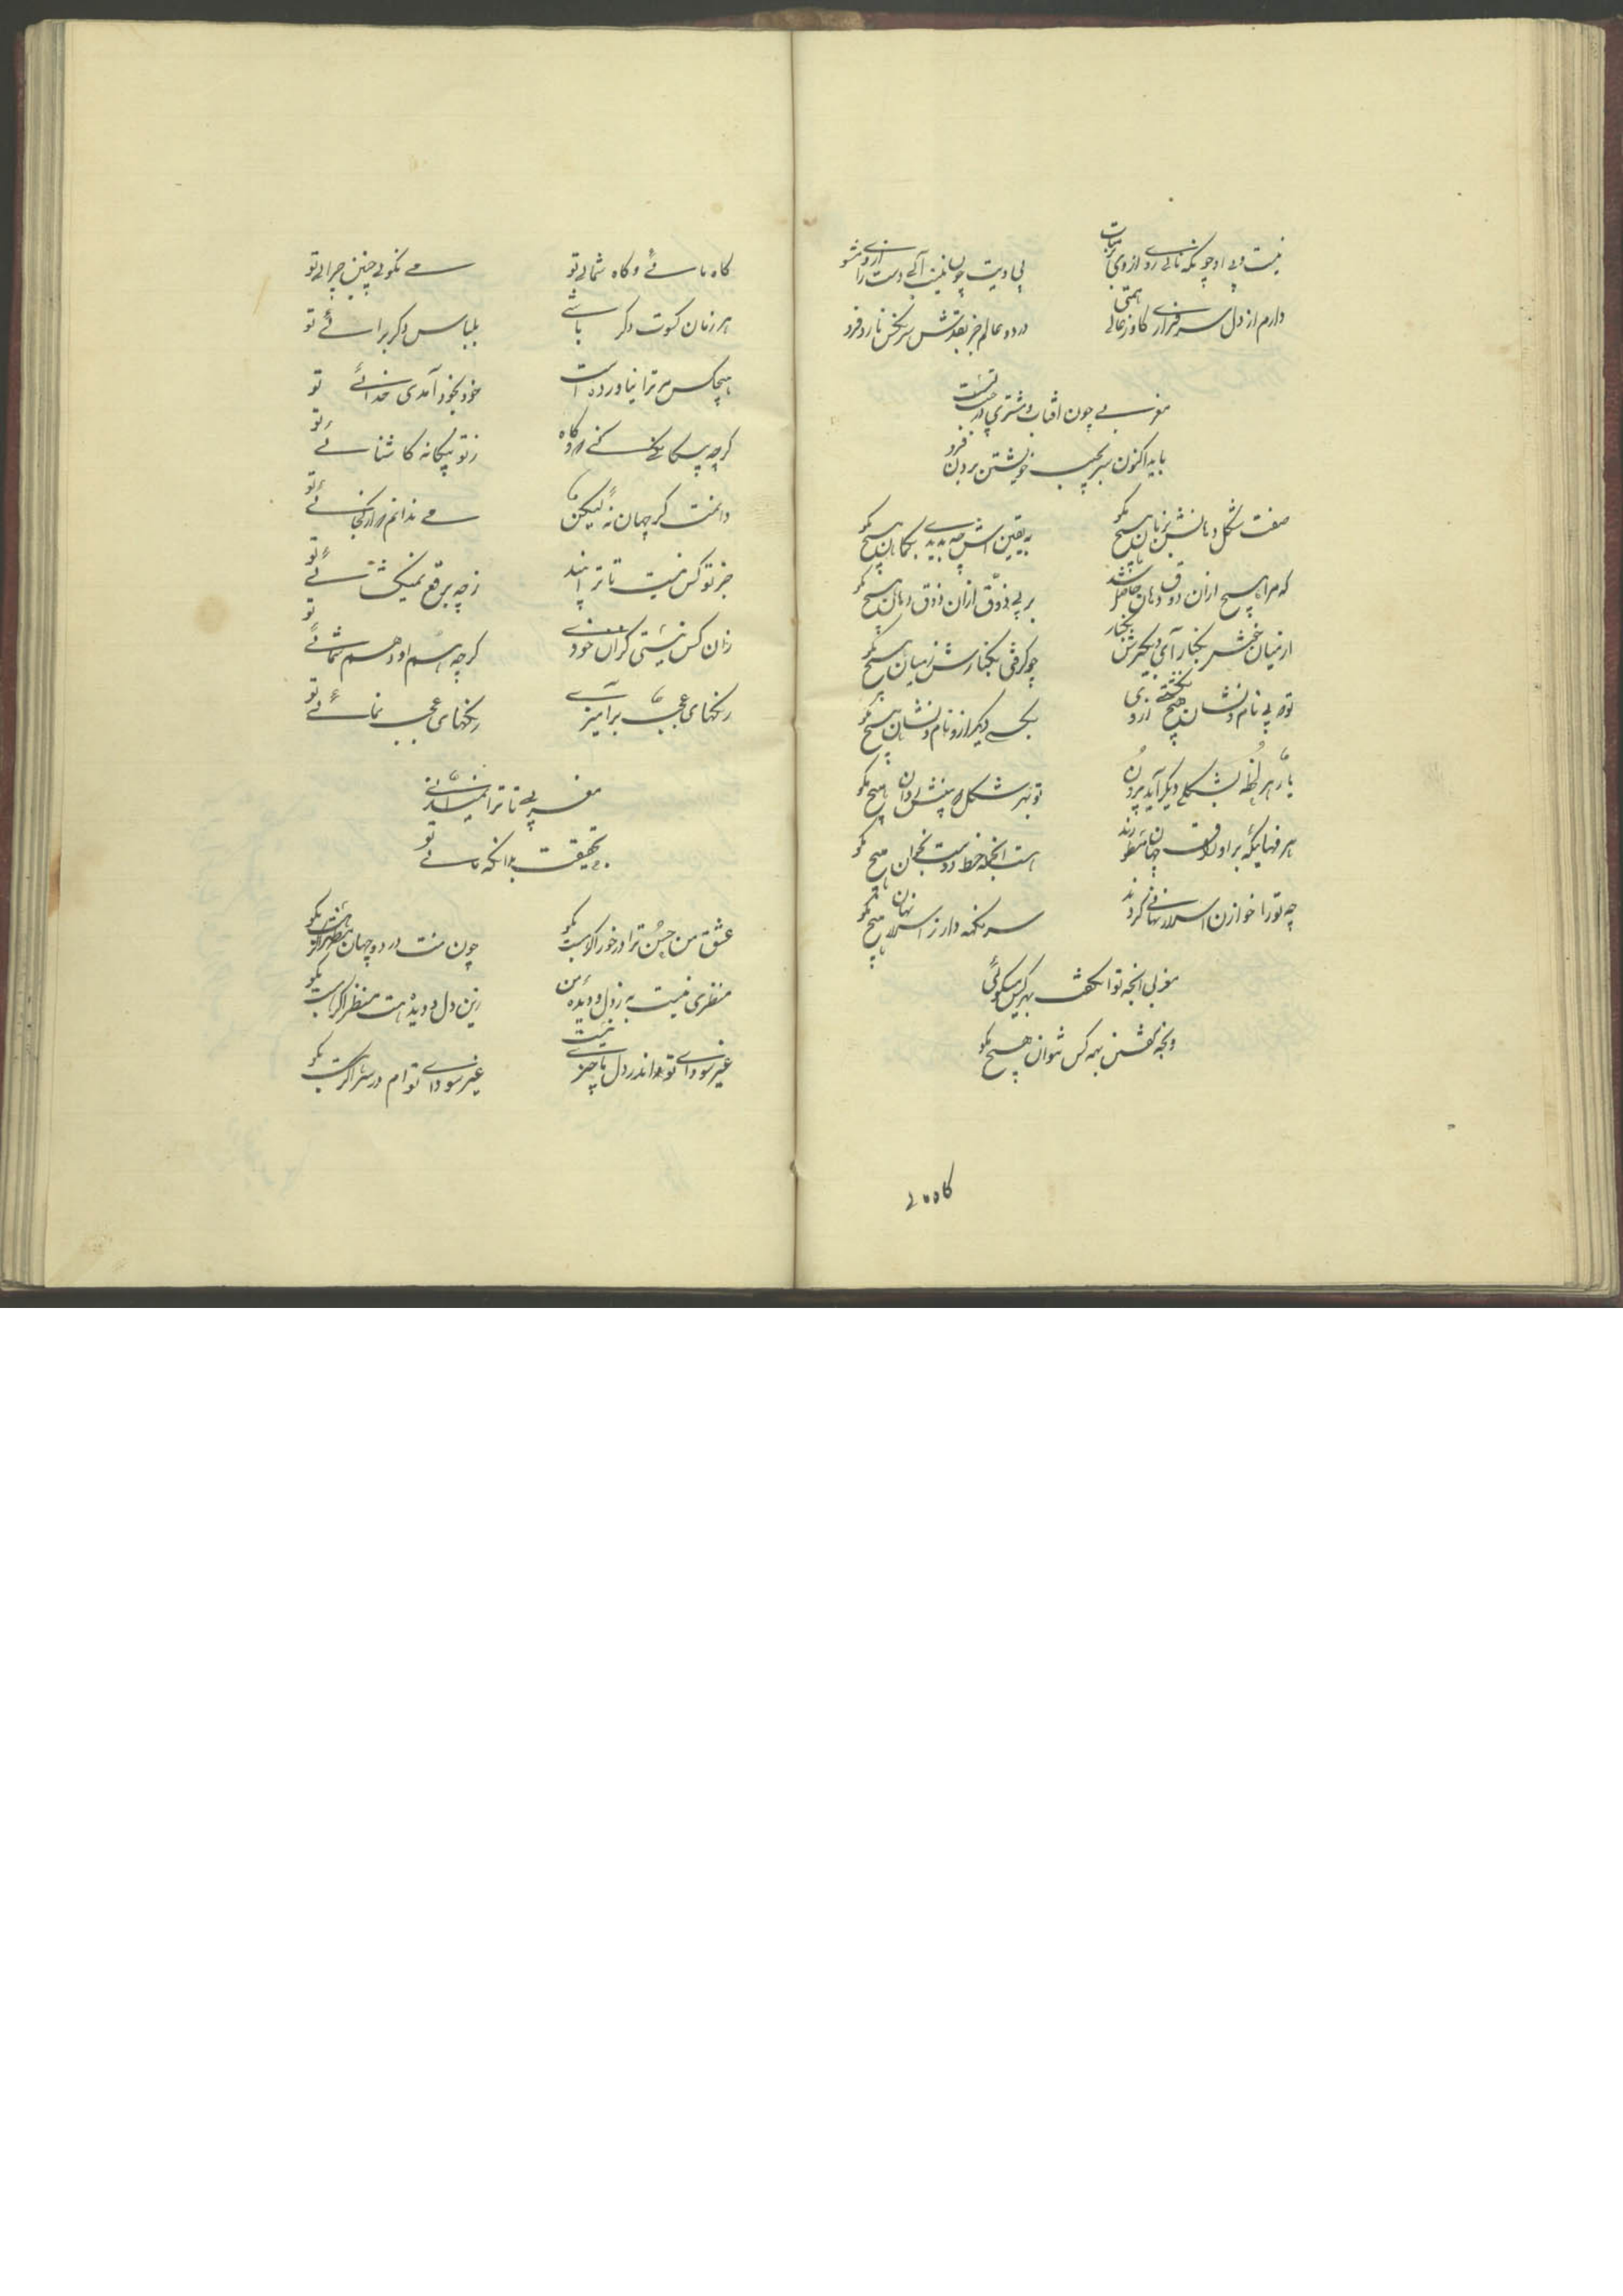 نیست وی او چونکه تابی رو از وی بر متاب
بی ادیت چون نیست آبی دست را از وی مشو
دارم از دل سرفرازی همتی کاوز عالی
در دو عالم جز بقدش سر بکس نارد فرو
مغربی چون آفتاب و مشتری در جیب تست
باید اکنون سر بجیب خویشتن بردن فرو
صفت شکل دهانش بزبان هیچ مگو
به یقین اش چه بدیدی بگمان هیچ مگو
که مرا هیچ ازان ذوق دهان حاصل شد
بر بی ذوق ازان ذوق دهان هیچ مگو
از میانش بکنار آی و بگیرش بکنار
چو گرفتی بکنارش ز میان هیچ مگو
تو بی نام و نشان هیچ نگفتی از وی
بکسی دیگر ازو نام و نشان هیچ مگو
یار هر لحظه بشکلی دیگر آید برون
تو بهر شکل که بینش بدان هیچ مگو
هر که بر اوراق جهان
هست آنجمله خط دوست بخوان هیچ مگو
چه تو را خوازن اسرار نهانی کردند
سر نگه دار ز اسرار نهان هیچ مگو
مغربی آنچه توان گفت بهر کس میگوئی
وآنچه گفتن بهمه کس نتوان هیچ مگو
گاه مائی و گاه شمائی تو
می نگوئی چنین چرائی تو
هر زمان کسوت دگر باشی
بلباس دگر برائی تو
هیچکس مر ترا نیاورده است
خود بخود آمدی خدائی تو
گرچه بیگانگی کنی گه گاه
ز تو بیگانه کاشنائی تو
دانمت کز جهان نه لیکن
می ندانم که از کجائی تو
جز تو کس نیست تا ترا بیند
ز چه برقع نمیگشائی تو
زان کس نیستی که آن خودی
گرچه هم او و هم شمائی تو
رنگهای عجب برآمیزی
رنگهای عجب نمائی تو
مغربی تا ترا
بحقیقت بدانکه مائی تو
عشق من حسن ترا درخور اگر هست بگو
چون منت در دو جهان مظهر اگر هست بگو
منظری نیست به ز دل و دیده من
زین دل و دیده بهت منظر اگر هست بگو
غیر سودای تو اندر دل ما چیزی نیست
غیر سودای توام در سر اگر هست بگو